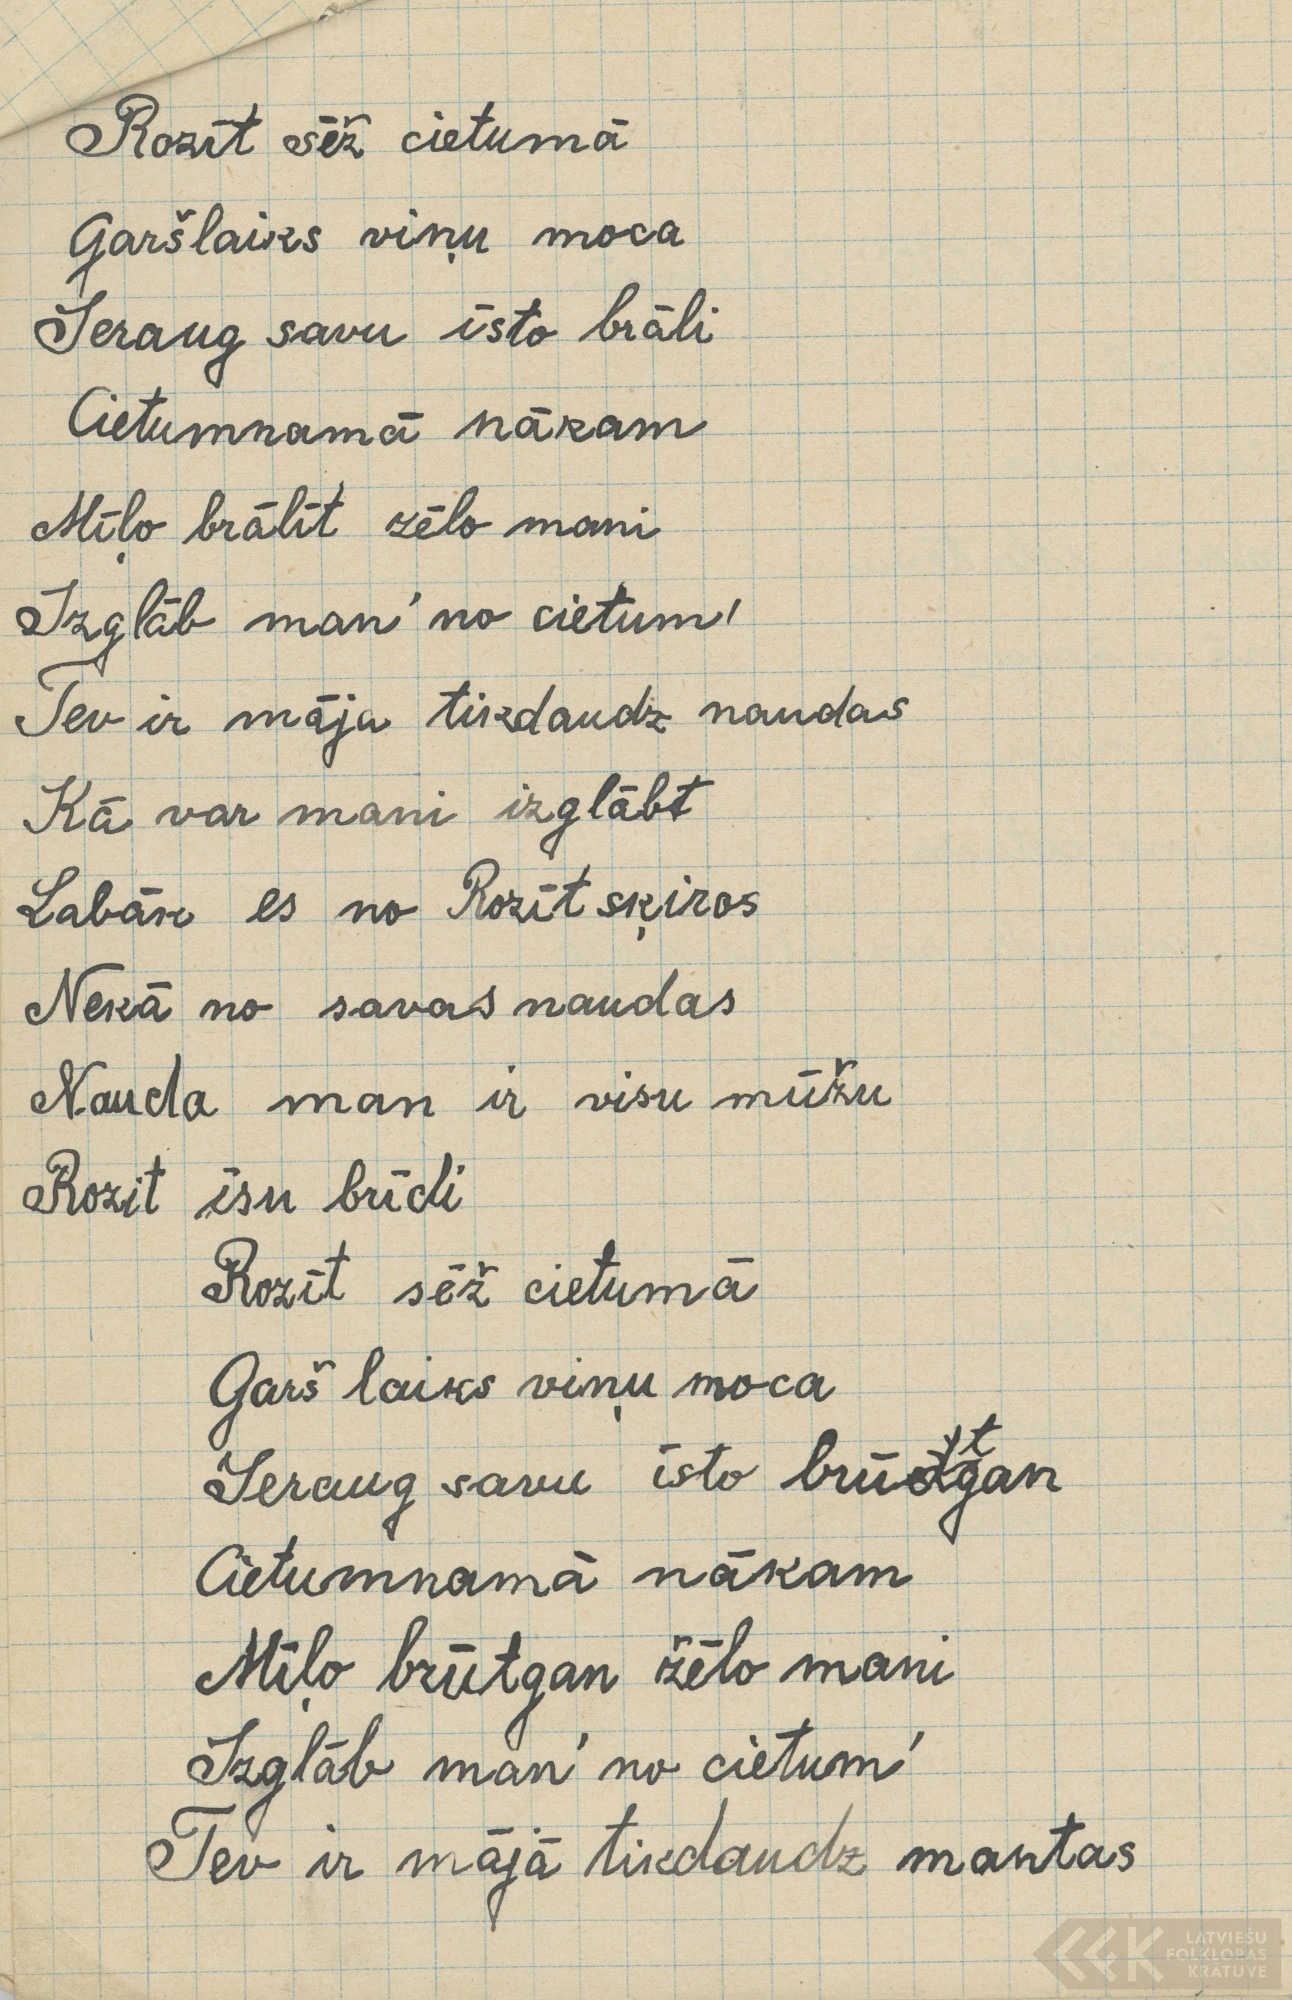 Rozīt sēž cietumā
Garšlaiks viņu moca
Ieraug savu īsto brāli
Cietumnamā nākam
Mīļo brālīt zēlo mani
Izglāb man' no cietum'
Tev ir māja tikdaudz naudas
Kā var mani izglābt
Labāk es no Rozīt sķiros
Nekā no savas naudas
Nauda man ir visu mūžu
Rozit īsu brīdi
Rozīt sēž cietumā
Garš laiks viņu moca
Ieraug savu īsto brūtgan
Cietumnamā nākam
Mīļo brūtgan žēlo mani
Izglāb man' no cietum'
Tev ir mājā tikdaudz mantas
LATVIEŠU
FOLKLORAS
KRĀTUVE